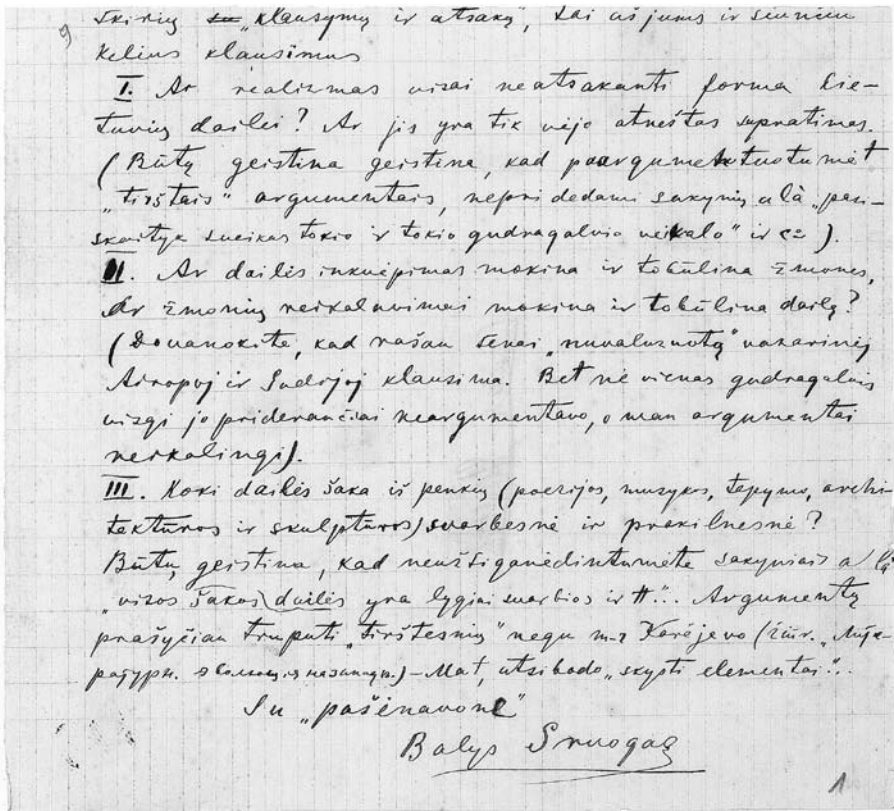 9 skirių su „klausymų ir atsakų", tai aš jums ir siunčiu
kelius klausimus
I. Ar realizmas visai neatsakanti forma Lie-
tuvių dailei? Ar jis yra tik vėjo atneštas supratimas.
(Būtų geistina geistina, kad paargumentuotumėt
„tirštais" argumentais, nepridedami sakynių a là „pasi-
skaityk sueikas tokio ir tokio gudragalvio veikalo" ir c=).
II. Ar dailės inkvėpimas mokina ir tobūlina žmones,
Ar žmonių reikalavimai mokina ir tobūlina dailę?
(Dovanokite, kad rašau senai „nuvaluznotą" vakarinėj
Airopoj ir Sudijoj klausima. Bet nė vienas gudragalvis
visgi jo priderančiai neargumentavo, o man argumentai
reikalingi).
III. Koki dailės šaka iš penkių (poezijos, muzykos, tapymo, archi-
tektūros ir skulptūros) svarbesnė ir prakilnesnė?
Būtų geistina, kad neužsiganėdintumėte sakyniais a là
„visos šakos dailės yra lygiai svarbios ir tt"... Argumentų
prašyčiau truputi „tirštesnių" negu m-r Karėjevo (žiūr. „Литe-
ратурн. эволюция на западе.) – Mat, atsibodo „skysti elementai"...
Su „pašėnavone"
Balys Sruogas
1